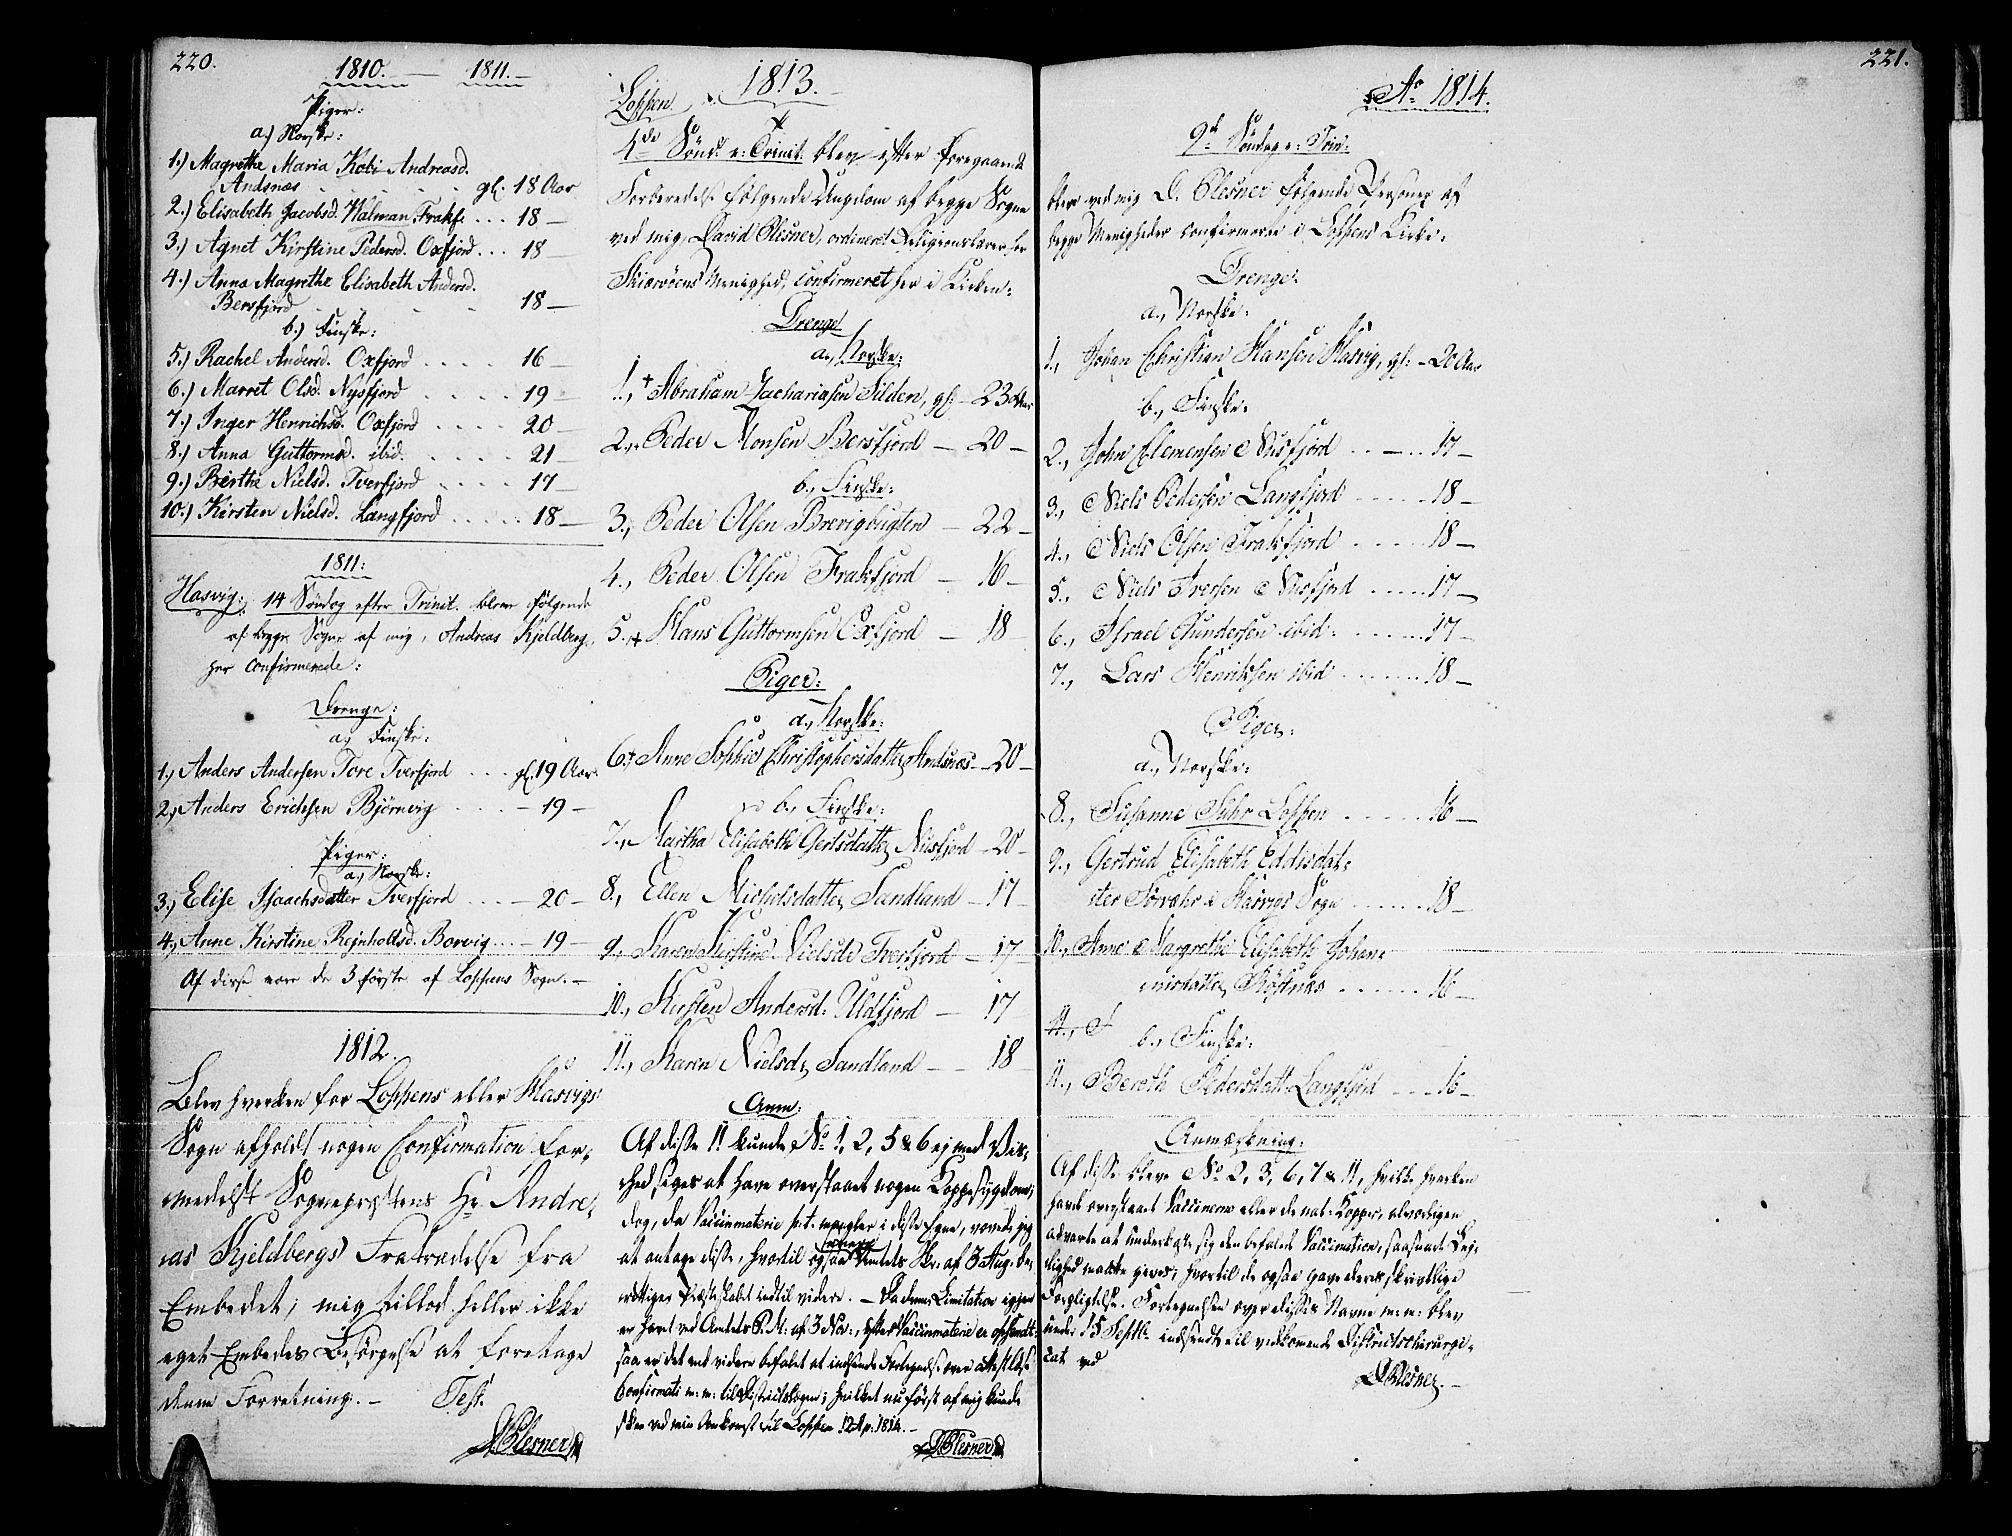 220.
1810. — 1811. —
Piger:
a.) Norske:
1.) Magrethe Maria Kobi Andreasd.
Andsnæs . . . . . gl: 18 Aar
2.) Elisabeth Jacobsd. Halman Frakf. . . . 18 —
3.) Agnet Kirstine Pedersd. Oxfjord . . . 18 —
4.) Anna Magrethe Elisabeth Andersd.
Bersfjord . . . . 18 —
b.) Finske:
5.) Rachel Andersd. Oxfjord . . . . 16 —
6.) Marret Olsd. Nysfjord . . . . 19 —
7.) Inger Henrichsd. Oxfjord . . . . 20 —
8.) Anna Guttormsd. ibid. . . . . 21 —
9.) Berthe Nielsd. Tverfjord . . . . 17 —
10.) Kirsten Nielsd. Langfjord . . . . 18 —
1811:
Hasvig: 14 Søndag efter Trinit. bleve følgende
af begge Sogne af mig, Andreas Kjeldberg,
her confirmerede:
Drenge:
a.) Finske:
1., Anders Andersen Tore Tverfjord . . . gl. 19 Aar
2., Anders Erichsen Bjørnvig . . . — 19 —
Piger:
a., Norske:
3., Elise Isaachsdatter Tverfjord . . . — 20 —
4., Anne Kirstine Rejnholtsd. Borvig . . . — 19 —
Af disse vare de 3 første af Loppens Sogn. —
1812.
Blev hverken for Loppens eller Hasvigs
Sogn afholdt nogen Confirmation for-
medelst Sognepræstens Hr. Andre-
as Kjeldbergs Fratrædelse fra
Embedet; mig tillod heller ikke
eget Embedes Besørgelse at foretage
denne Forretning. — Test.
D Plesner
1813. —
Loppen
4de Sönd: e: Trinit: blev efter foregaaende
Forberedelse følgende Ungdom af begge Sogne
ved mig, David Plesner, ordineret Religionslærer for
Skiervöens Menighed, confirmeret her i Kirken:
Drenge
a., Norske:
1., + Abraham Zachariasen Silden, gl: — 23 Aar
2., Peder Monsen Bersfjord — 20 —
b., Finske:
3., Peder Olsen Brevigbugten — 22 —
4., Peder Olsen Frakfjord — 16 —
5., + Hans Guttormsen Oxfjord — 18 —
Piger:
a., Norske:
6., + Anne Sophie Christophersdatter Andsnæs — 20 —
b., Finske:
7., Martha Elisabeth Gertsdatter Nusfjord — 20 —
8., Ellen Nicholsdatter Sandland — 17 —
9., Karen Kirstine Nielsd: Tverfjord — 17 —
10., Kirsten Andersd: Uldfjord — 17
11., Karen Nielsd: Sandland — — 18 —
Anm:
Af disse 11 kunde No 1, 2, 5 & 6 ej med Vis-
hed siges at have overstaaet nogen Koppesygdom;
dog, da Vaccinmaterie p: t. mangler i disse Egne, vovede jeg
at antage disse, hvortil ogsaa Amtets Br. af 3 Aug. be-
rettiger Præsteskabet indtil videre. — Da denne Limitation igjen
er hævet ved Amtets P. M: af 3 Nov:, efter Vaccinmaterie er
saa er det ved videre befalet at indsende Fortegnelse over
Confirmati m: m: til Districtslægen; hvilket nu først af mig kunde
skee ved min Ankomst til Loppen 12 Ap: 1814. —
D Plesner
221.
Ao 1814.
9de Söndag e: Trin:
blev ved mig D. Plesner følgende Personer af
begge Menigheder confirmeret i Loppens Kirke:
Drenge:
a., Norske:
1., Johan Christian Hansen Hasvig, gl: — 20 Aar
b., Finske:
2., John Clemensen Nusfjord . . — . . 17 —
3., Niels Pedersen Langfjord . . . . . 18 —
4., Niels Olsen Frakfjord . . . . . 18 —
5., Niels Iversen Nusfjord . . . . . 17 —
6., Israel Gundersen ibid: . . . . . 17 —
7., Lars Henriksen ibid . . . . . 18 —
Piger:
a., Norske:
8., Susanne Suhr Loppen . . . . . 16 —
9., Gertrud Elisabeth Eddisdat-
ter Sørvær i Hasvigs Sogn . . . . . 18 —
10., Anne Margrethe Elisabeth Johan-
nisdatter . . . . . 16 —
11., S
b., Finske:
11., Bereth Pedersdatt: Langfjord . . . 16 —
Anmærkning:
Af disse bleve No 2, 3, 6, 7 & 11, hvilke hverken
havde overstaaet Vaccinerne eller de nat: Kopper, alvorligen
advarte at underkaste sig den befalede Vaccination, saasnart Lej-
lighed maatte gives; hvortil de ogsaa gave deres skrivtlige
Forpligtelse. Fortegnelsen over disses Navne m: m: blev
under 15 Septb: indsendt til vedkommende Districtschirurgi-
cat ved
D Plesner. —